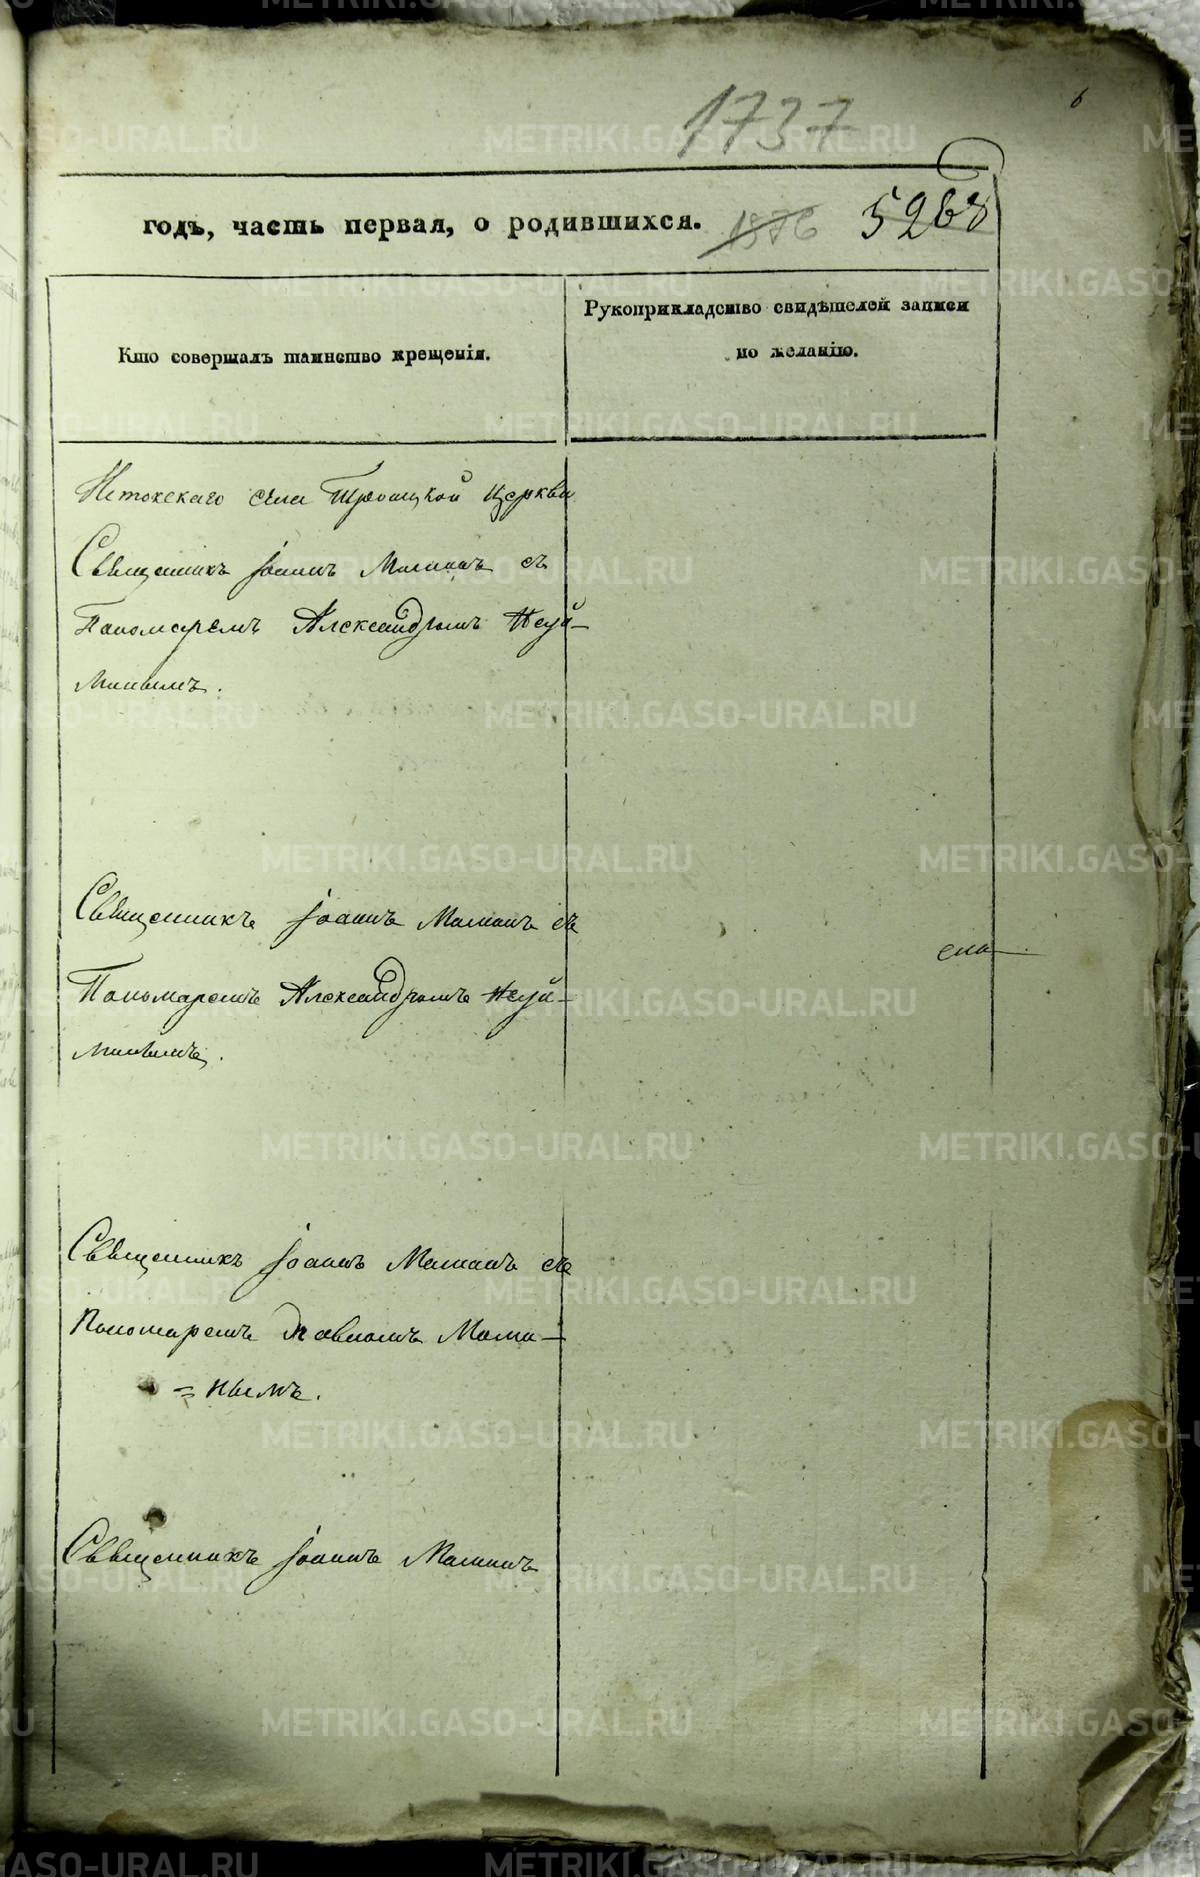 1737
6
годъ, часть первая, о родившихся. 1876 5268
Кто совершалъ таинство крещенія.
Рукоприкладство свидѣтелей записи
по желанію.
села Троицкой церкви
Священникъ Іоаннъ Маминъ съ
Пономаремъ Александромъ Неуй-
минымъ.
Священникъ Іоаннъ Маминъ съ
Пономаремъ Александромъ Неуй-
минымъ.
Священникъ Іоаннъ Маминъ съ
Пономаремъ Мами-
=нымъ.
Священникъ Іоаннъ Маминъ
METRIKI.GASO-URAL.RU